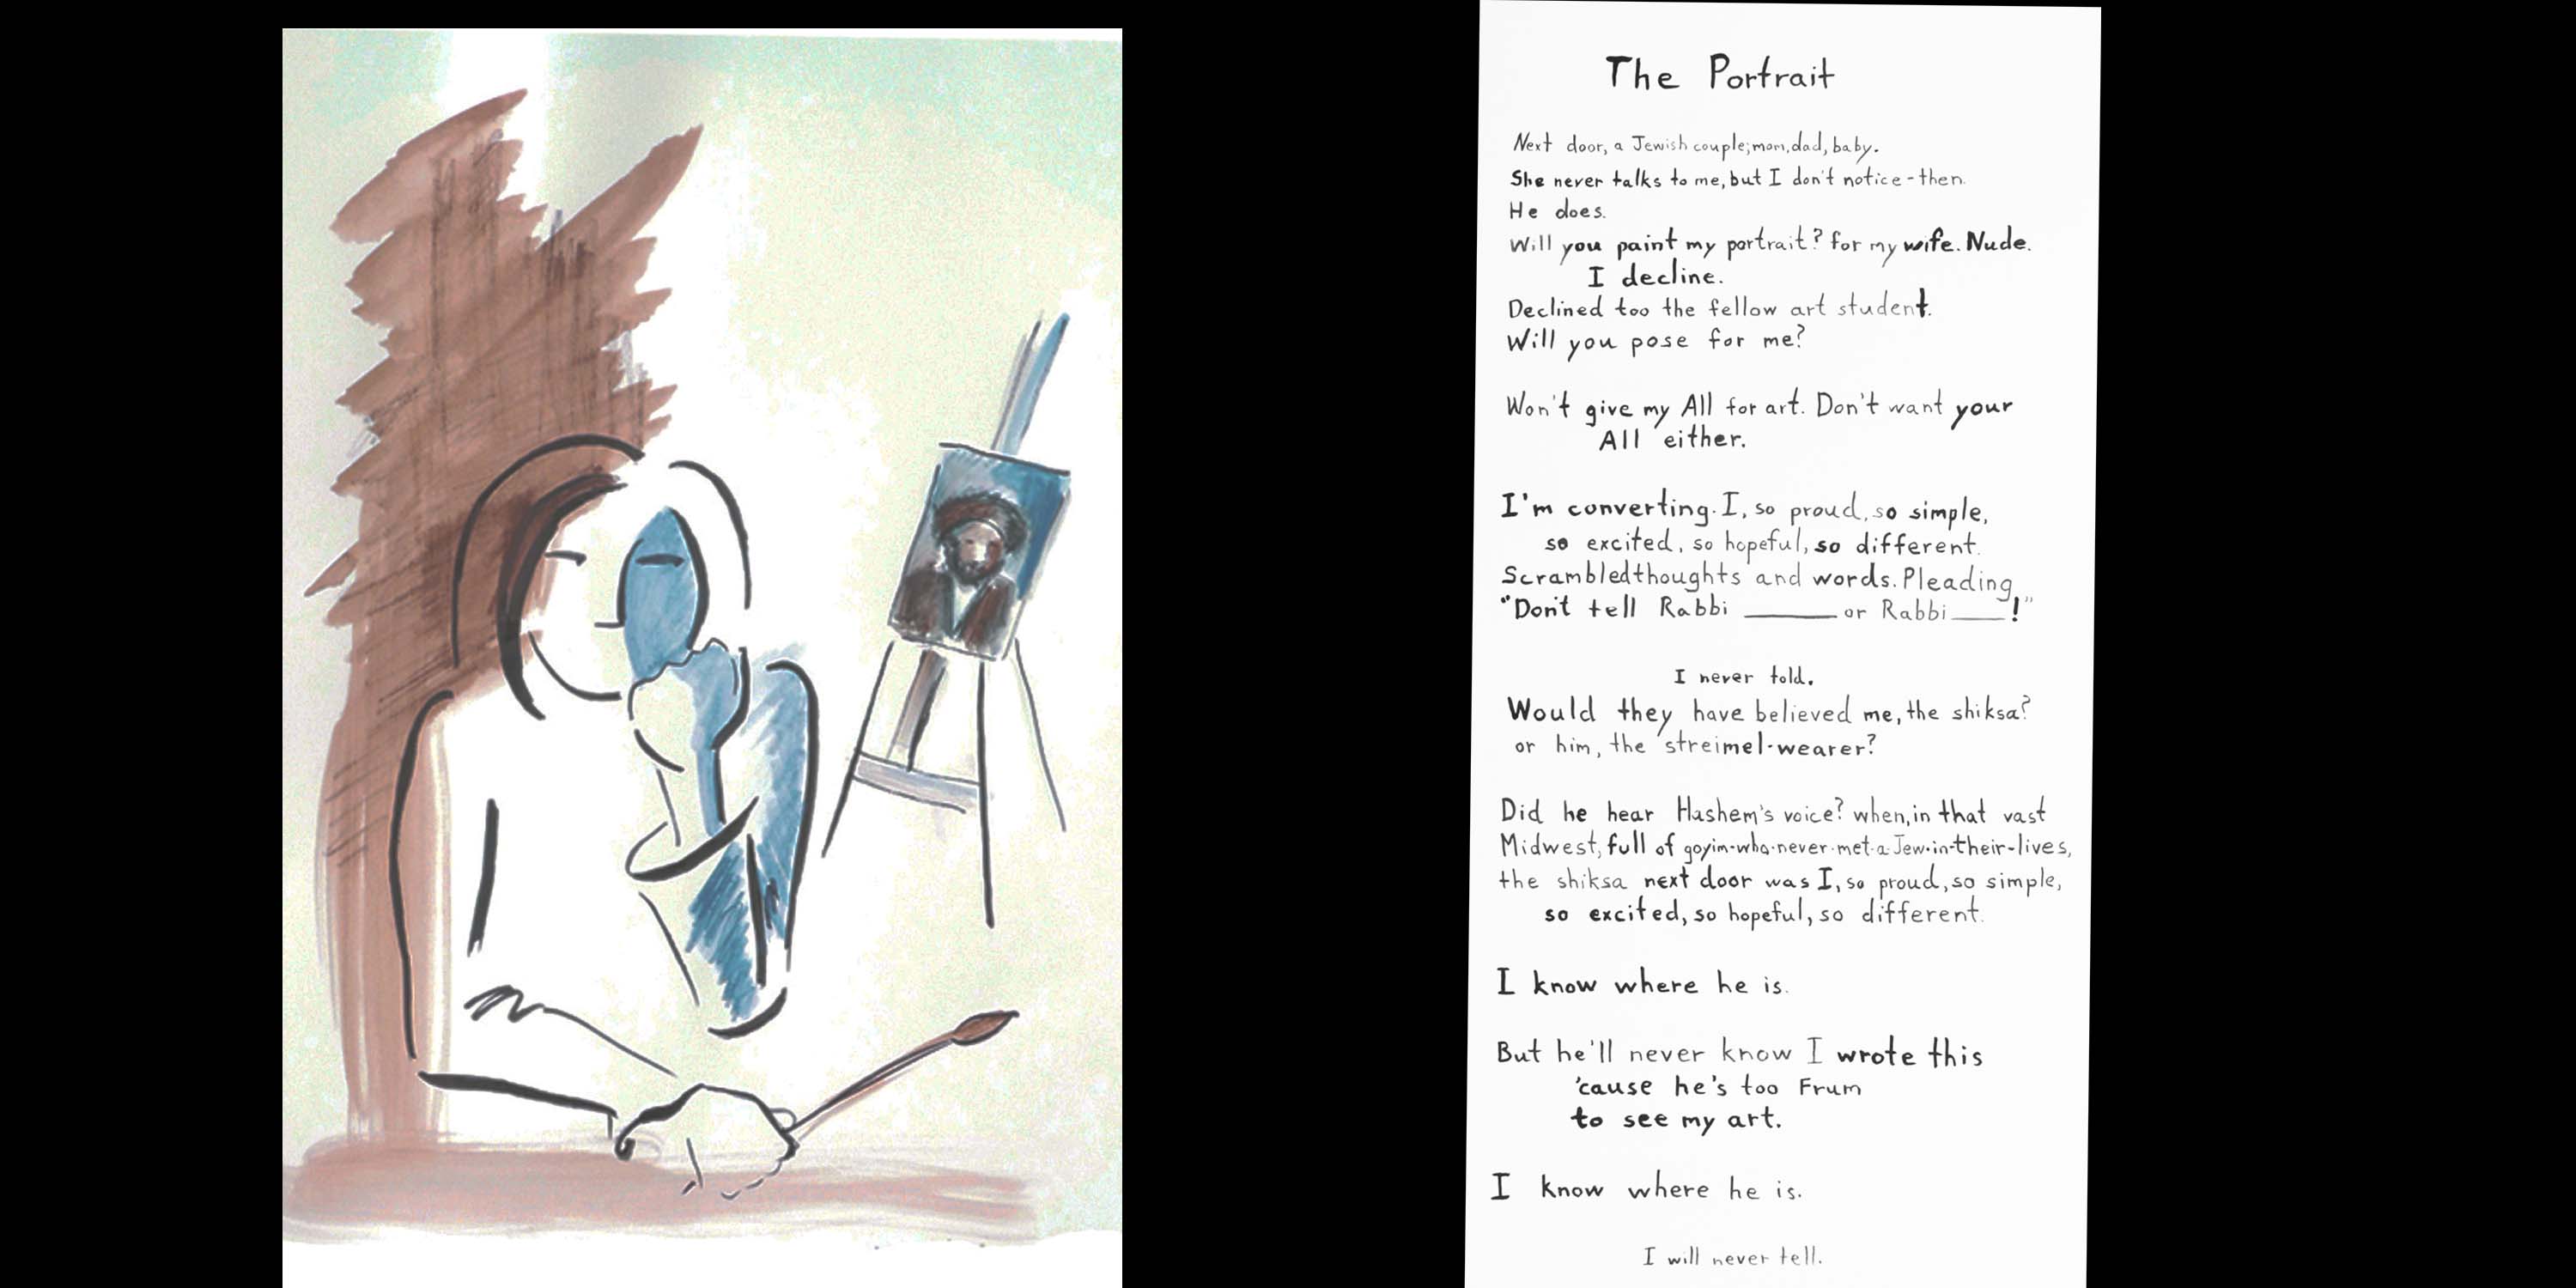 The Portrait
Next door, a Jewish couple; mom, dad, baby.
She never talks to me, but I don't notice - then.
He does.
Will you paint my portrait? for my wife. Nude.
I decline.
Declined too the fellow art student.
Will you pose for me?
Won't give my All for art. Don't want your
All either.
I'm converting. I, so proud, so simple,
so excited, so hopeful, so different.
Scrambled thoughts and words. Pleading,
"Don't tell Rabbi ______ or Rabbi ____!"
I never told.
Would they have believed me, the shiksa?
or him, the streimel-wearer?
Did he hear Hashem's voice? when, in that vast
Midwest, full of goyim-who-never-met-a-Jew-in-their-lives,
the shiksa next door was I, so proud, so simple,
so excited, so hopeful, so different.
I know where he is.
But he'll never know I wrote this
'cause he's too Frum
to see my art.
I know where he is.
I will never tell.